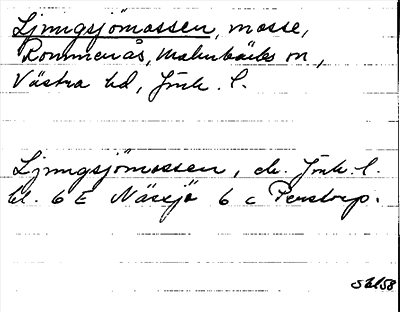 Ljungsjömossen, mosse,
Rommenås, Malmbäcks sn,
Västra hd, Jönk. l.
Ljungsjömossen, ek. Jönk. l.
bl. 6 E Nässjö 6 c Perstorp.